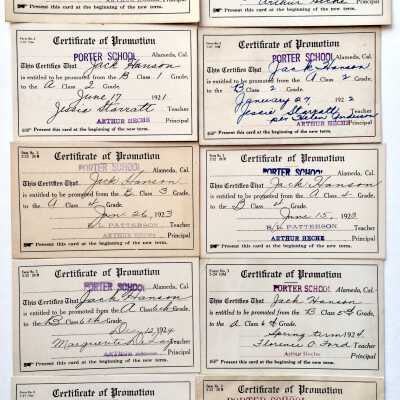 Present this card at the beginning of the new term.
Arthur Heche
Principal
Present this card at the beginning of the new term.
Certificate of Promotion
PORTER SCHOOL Alameda, Cal.
This Certifies That Jack Hanson
is entitled to be promoted from the B Class 1 Grade,
to the A Class 2 Grade.
June 17 1921
Jessie Starratt Teacher
ARTHUR HECHE Principal
Present this card at the beginning of the new term.
Certificate of Promotion
PORTER SCHOOL Alameda, Cal.
This Certifies That Jack Hanson
is entitled to be promoted from the A Class 2 Grade,
to the B Class 2 Grade.
January 27 1922
Jessie Starratt Teacher
per Helen Anderson
ARTHUR HECHE Principal
Present this card at the beginning of the new term.
Certificate of Promotion
PORTER SCHOOL Alameda, Cal.
This Certifies That Jack Hanson
is entitled to be promoted from the B Class 3 Grade,
to the A Class 4 Grade.
Jan 26, 1923
L PATTERSON Teacher
ARTHUR HECHE Principal
Present this card at the beginning of the new term.
Certificate of Promotion
PORTER SCHOOL Alameda, Cal.
This Certifies That Jack Hanson
is entitled to be promoted from the A Class 4 Grade,
to the B Class 4 Grade.
June 15, 1923
L PATTERSON Teacher
ARTHUR HECHE Principal
Present this card at the beginning of the new term.
Certificate of Promotion
PORTER SCHOOL Alameda, Cal.
This Certifies That Jack Hanson
is entitled to be promoted from the A Class 6th Grade,
to the B Class 6th Grade.
Dec 12, 1924
Marguerite Teacher
ARTHUR HECHE Principal
Present this card at the beginning of the new term.
Certificate of Promotion
PORTER SCHOOL Alameda, Cal.
This Certifies That Jack Hanson
is entitled to be promoted from the B Class 5th Grade,
to the A Class 6th Grade.
Spring term 1924
Florence O. Ford Teacher
Arthur Heche Principal
Present this card at the beginning of the new term.
Certificate of Promotion
Certificate of Promotion
PORTER SCHOOL